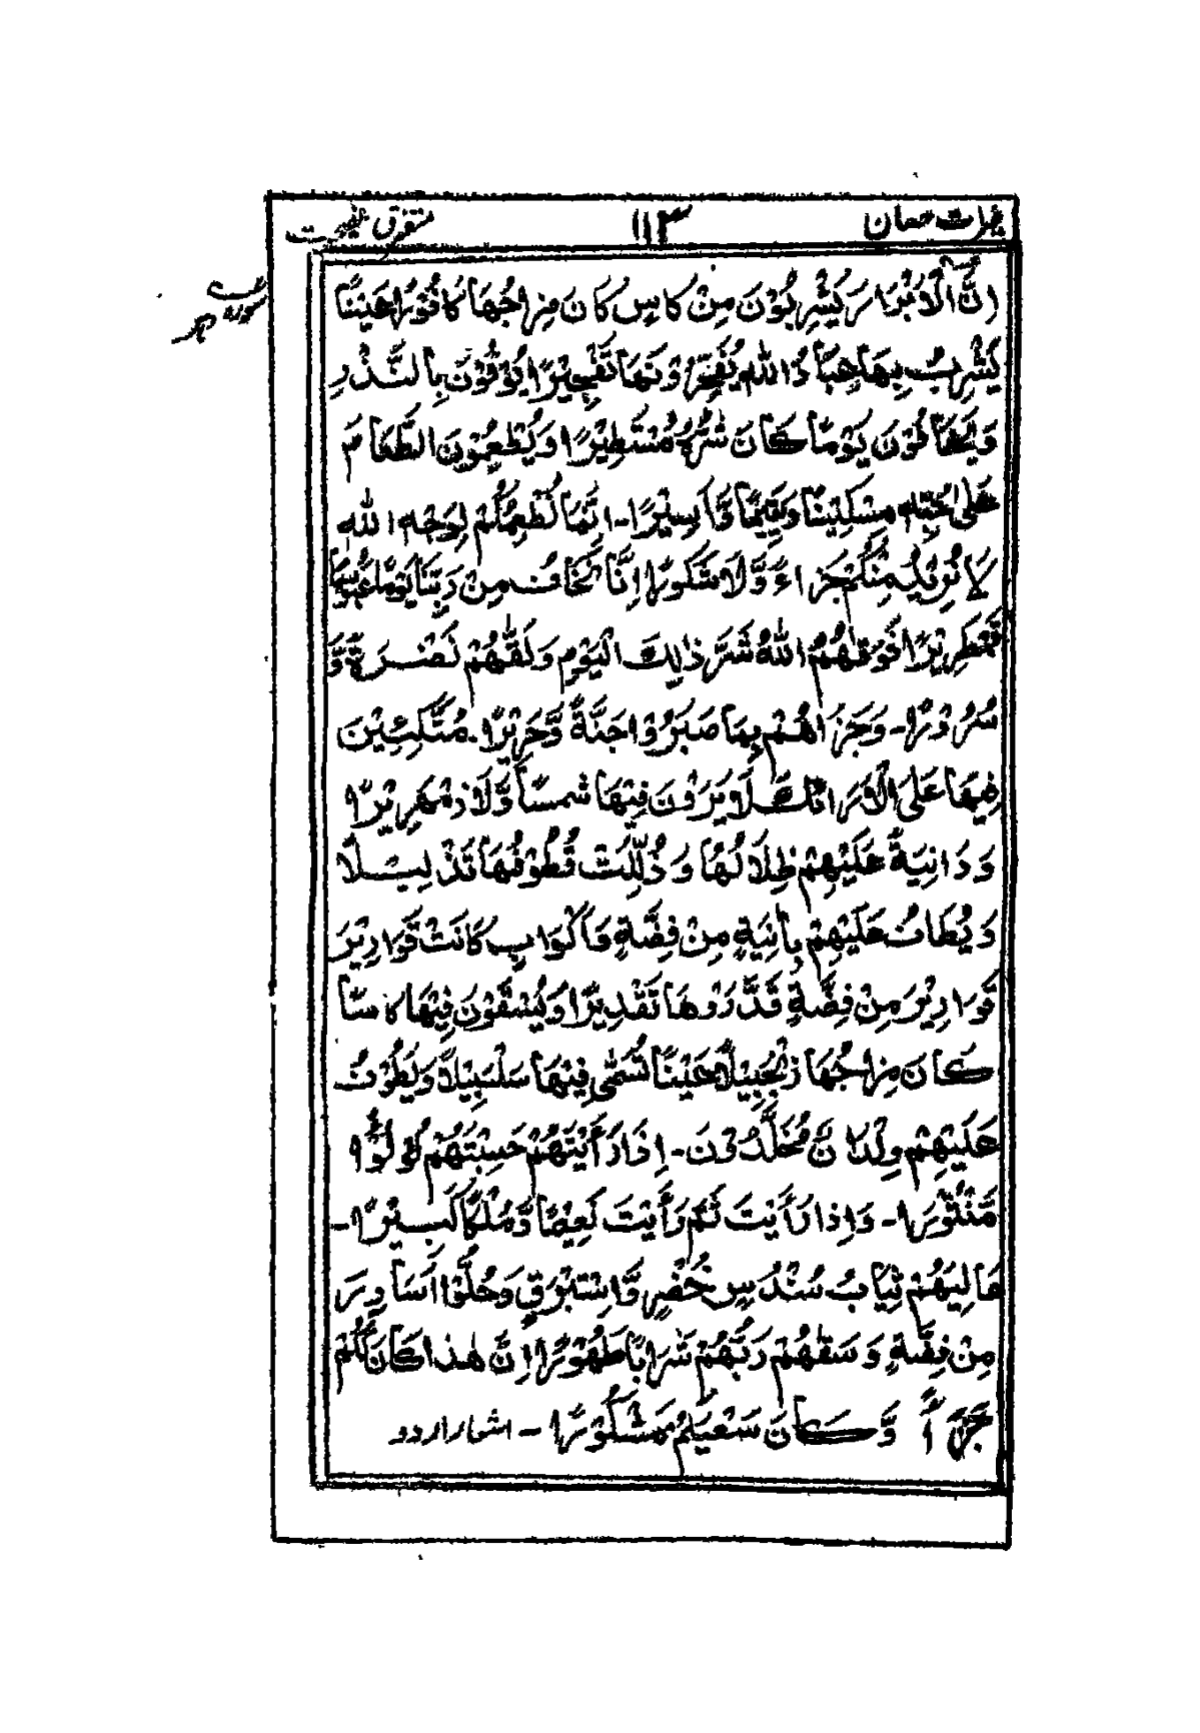 متفرق ۱۱۳
اِنَّ الْاَبْرَارَ يَشْرَبُوْنَ مِنْ كَاسٍ كَانَ مِزَاجُهَا كَافُوْرًا عَيْنًا
سورہ دہر
يَشْرَبُ بِهَا عِبَادُ اللهِ يُفَجِّرُوْنَهَا تَفْجِيْرًا يُوْفُوْنَ بِالنَّذْرِ
وَيَخَافُوْنَ يَوْمًا كَانَ شَرُّهٗ مُسْتَطِيْرًا وَيُطْعِمُوْنَ الطَّعَامَ
عَلٰى حُبِّهٖ مِسْكِيْنًا وَّيَتِيْمًا وَّاَسِيْرًا۔ اِنَّمَا نُطْعِمُكُمْ لِوَجْهِ اللهِ
لَا نُرِيْدُ مِنْكُمْ جَزَاءً وَّلَا شُكُوْرًا اِنَّا نَخَافُ مِنْ رَبِّنَا يَوْمًا عَبُوْسًا
قَمْطَرِيْرًا فَوَقٰهُمُ اللهُ شَرَّ ذٰلِكَ الْيَوْمِ وَلَقّٰهُمْ نَضْرَةً وَّ
سُرُوْرًا۔ وَجَزَاهُمْ بِمَا صَبَرُوْا جَنَّةً وَّحَرِيْرًا۔ مُتَّكِئِيْنَ
فِيْهَا عَلَى الْاَرَائِكِ لَا يَرَوْنَ فِيْهَا شَمْسًا وَّلَا زَمْهَرِيْرًا
وَدَانِيَةً عَلَيْهِمْ ظِلَالُهَا وَذُلِّلَتْ قُطُوْفُهَا تَذْلِيْلًا
وَيُطَافُ عَلَيْهِمْ بِاٰنِيَةٍ مِنْ فِضَّةٍ وَاَكْوَابٍ كَانَتْ قَوَارِيْرَ
قَوَارِيْرَ مِنْ فِضَّةٍ قَدَّرُوْهَا تَقْدِيْرًا وَيُسْقَوْنَ فِيْهَا كَاسًا
كَانَ مِزَاجُهَا زَنْجَبِيْلًا عَيْنًا تُسَمّٰى فِيْهَا سَلْسَبِيْلًا وَيَطُوْفُ
عَلَيْهِمْ وِلْدَانٌ مُّخَلَّدُوْنَ۔ اِذَا رَاَيْتَهُمْ حَسِبْتَهُمْ لُؤْلُؤًا
مَّنْثُوْرًا۔ وَاِذَا رَاَيْتَ ثَمَّ رَاَيْتَ نَعِيْمًا وَّمُلْكًا كَبِيْرًا۔
عَالِيَهُمْ ثِيَابُ سُنْدُسٍ خُضْرٍ وَّاِسْتَبْرَقٍ وَحُلُّوْا اَسَاوِرَ
مِنْ فِضَّةٍ وَسَقٰهُمْ رَبُّهُمْ شَرَابًا طَهُوْرًا اِنَّ هٰذَا كَانَ لَكُمْ
جَزَاءً وَّكَانَ سَعْيُكُمْ مَّشْكُوْرًا۔ اشعار اردو